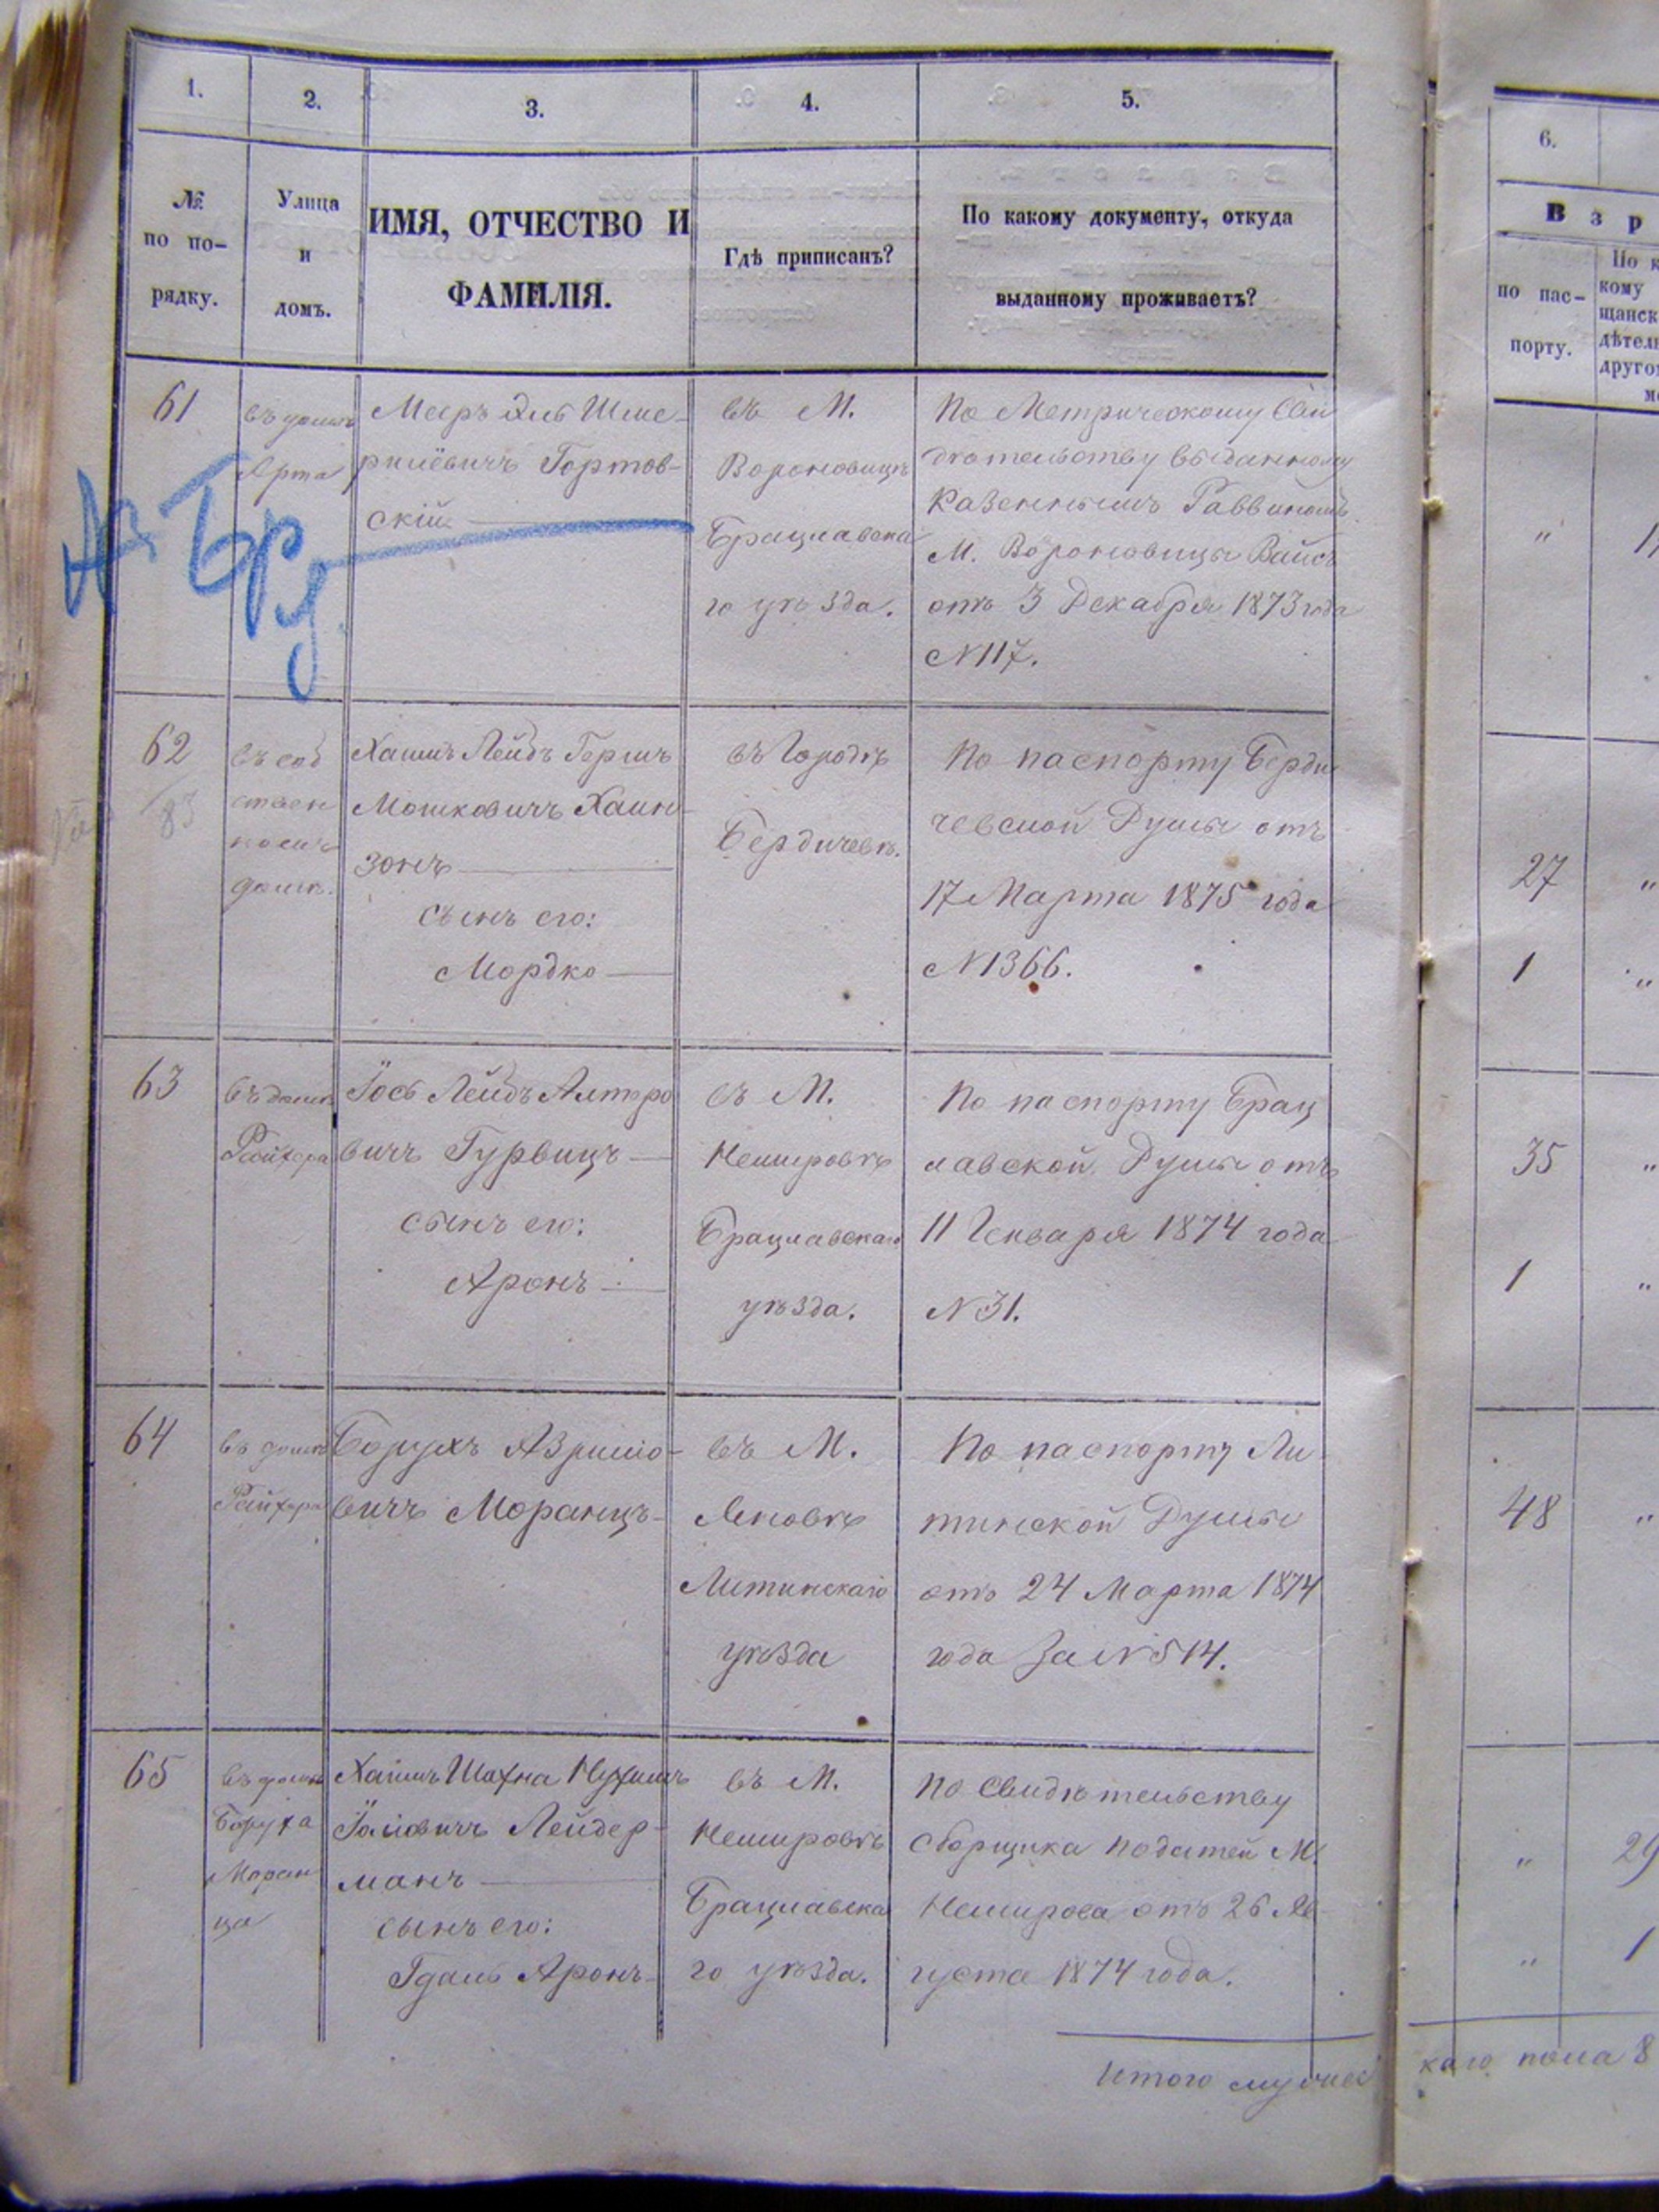 1.
2.
3.
4.
5.
6.
№
по по-
рядку.
Улица
и
домъ.
ИМЯ, ОТЧЕСТВО И
ФАМИЛІЯ.
Гдѣ приписанъ?
По какому документу, откуда
выданному проживаетъ?
В з р
по пас-
порту.
По к
кому
щанск
дѣтел
другом
61
въ домѣ
Арта
Мееръ Эль Шме-
рилёвичъ Гортов-
скій
въ М.
Вороновицѣ
Брацлавска
го уѣзда.
По Метрическому Сви
дѣтельству выданному
Казеннымъ Раввиномъ
М. Вороновицы Вайсъ
отъ 3 Декабря 1873 года
№ 117.
62
83
въ соб
ствен
номъ
домѣ.
Хаимъ Лейбъ Гершъ
Мошковичъ Хаин-
зонъ
сынъ его:
Мордко
въ Городѣ
Бердичевѣ.
По паспорту Берди
чевской Думы отъ
17 Марта 1875 года
№ 1366.
27 "
1 "
63
въ домѣ
Райхера
Іось Лейбъ Алтеро
вичъ Гурвицъ
сынъ его:
Аронъ
въ М.
Немировѣ
Брацлавскаго
уѣзда.
По паспорту Брац
лавской Думы отъ
11 Генваря 1874 года
№ 31.
35 "
1 "
64
въ домѣ
Райхера
Борухъ Азриліо-
вичъ Моранцъ
въ М.
Яновѣ
Литинскаго
уѣзда
По паспорту Ли
тинской Думы
отъ 24 Марта 1874
года За № 514.
48 "
65
въ домѣ
Боруха
Моран
ца
Хаимъ Шахна Нухимъ
Лейдер-
манъ
сынъ его:
Гдаль Аронъ
въ М.
Немировѣ
Брацлавска
го уѣзда.
По Свидѣтельству
Сборщика податей М.
Немирова отъ 26 Ав-
густа 1874 года.
" 29
" 1
Итого мужес
каго пола 8